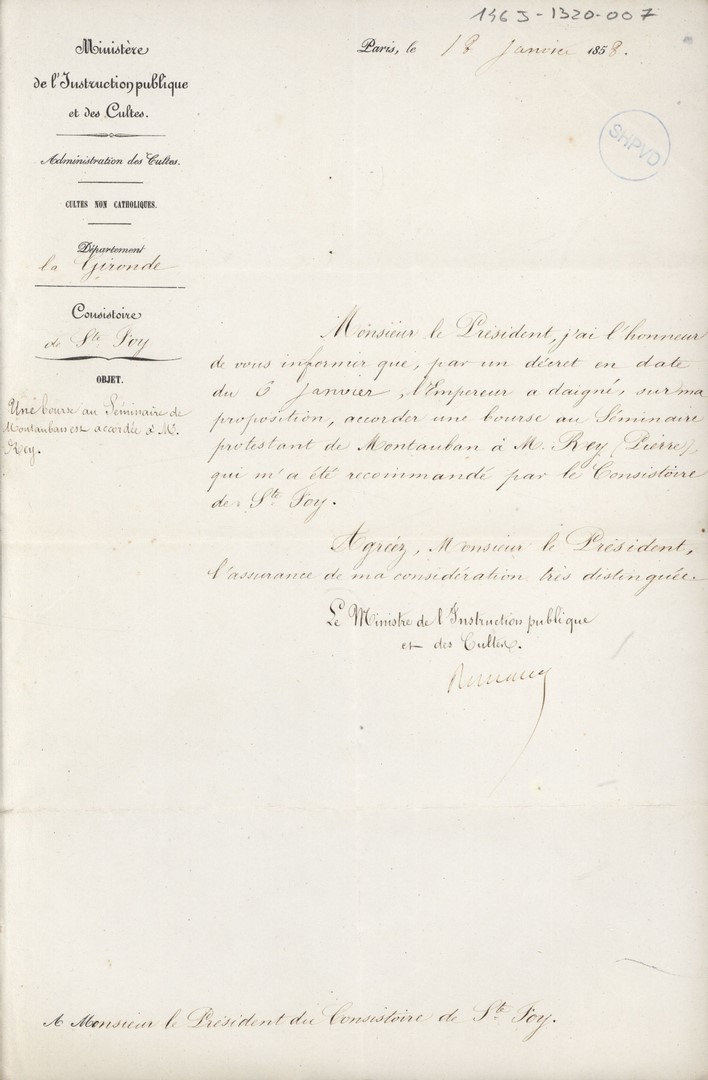 146 J-1320-007
Ministère
de l'Instruction publique
et des Cultes.
Administration des Cultes.
CULTES NON CATHOLIQUES.
Département
la Gironde
Consistoire
de Ste Foy
OBJET.
Une bourse au Séminaire de
Montauban est accordée à M.
Rey.
Paris, le 18 Janvier 1858.
SHPVD
Monsieur le Président, j'ai l'honneur
de vous informer que, par un décret en date
du 6 Janvier, l'Empereur a daigné, sur ma
proposition, accorder une bourse au Séminaire
protestant de Montauban à M. Rey (Pierre),
qui m'a été recommandé par le Consistoire
de Ste Foy.
Agréez, Monsieur le Président,
l'assurance de ma considération très distinguée.
Le Ministre de l'Instruction publique
et des Cultes.
A Monsieur le Président du Consistoire de Ste Foy.